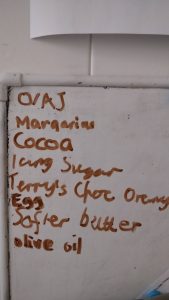 O/AJ
Margarine
Cocoa
Icing Sugar
Terry's Choc Oreny
Egg
Softer butter
olive oil